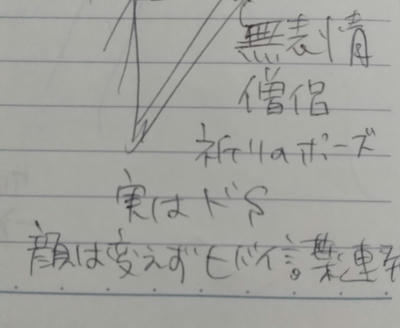 無表情
僧侶
祈りのポーズ
実はドS
顔は変えずヒドイ言葉連発